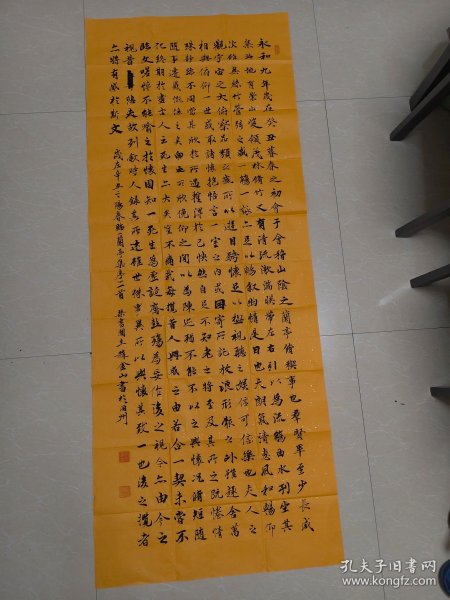 永和九年歲在癸丑暮春之初會于會稽山陰之蘭亭脩禊事也羣賢畢至少長咸
集此地有崇山峻領茂林脩竹又有清流激湍暎帶左右引以為流觴曲水列坐其
次雖無絲竹管弦之盛一觴一詠亦足以暢敘幽情是日也天朗氣清惠風和暢仰
觀宇宙之大俯察品類之盛所以遊目騁懷足以極視聽之娛信可樂也夫人之
相與俯仰一世或取諸懷抱悟言一室之內或因寄所託放浪形骸之外雖趣舍萬
殊靜躁不同當其欣於所遇暫得於己快然自足不知老之將至及其所之既惓情
隨事遷感慨係之矣向之所欣俛仰之間以為陳迹猶不能不以之興懷況脩短隨
化終期於盡古人云死生亦大矣豈不痛哉每攬昔人興感之由若合一契未嘗不
臨文嗟悼不能喻之於懷固知一死生為虛誕齊彭殤為妄作後之視今亦由今之
視昔悲夫故列敘時人錄其所述雖世殊事異所以興懷其致一也後之攬者
亦將有感於斯文
歲在辛丑陽春臨蘭亭集序一首 金山書於
孔夫子旧书网
www.kongfz.com